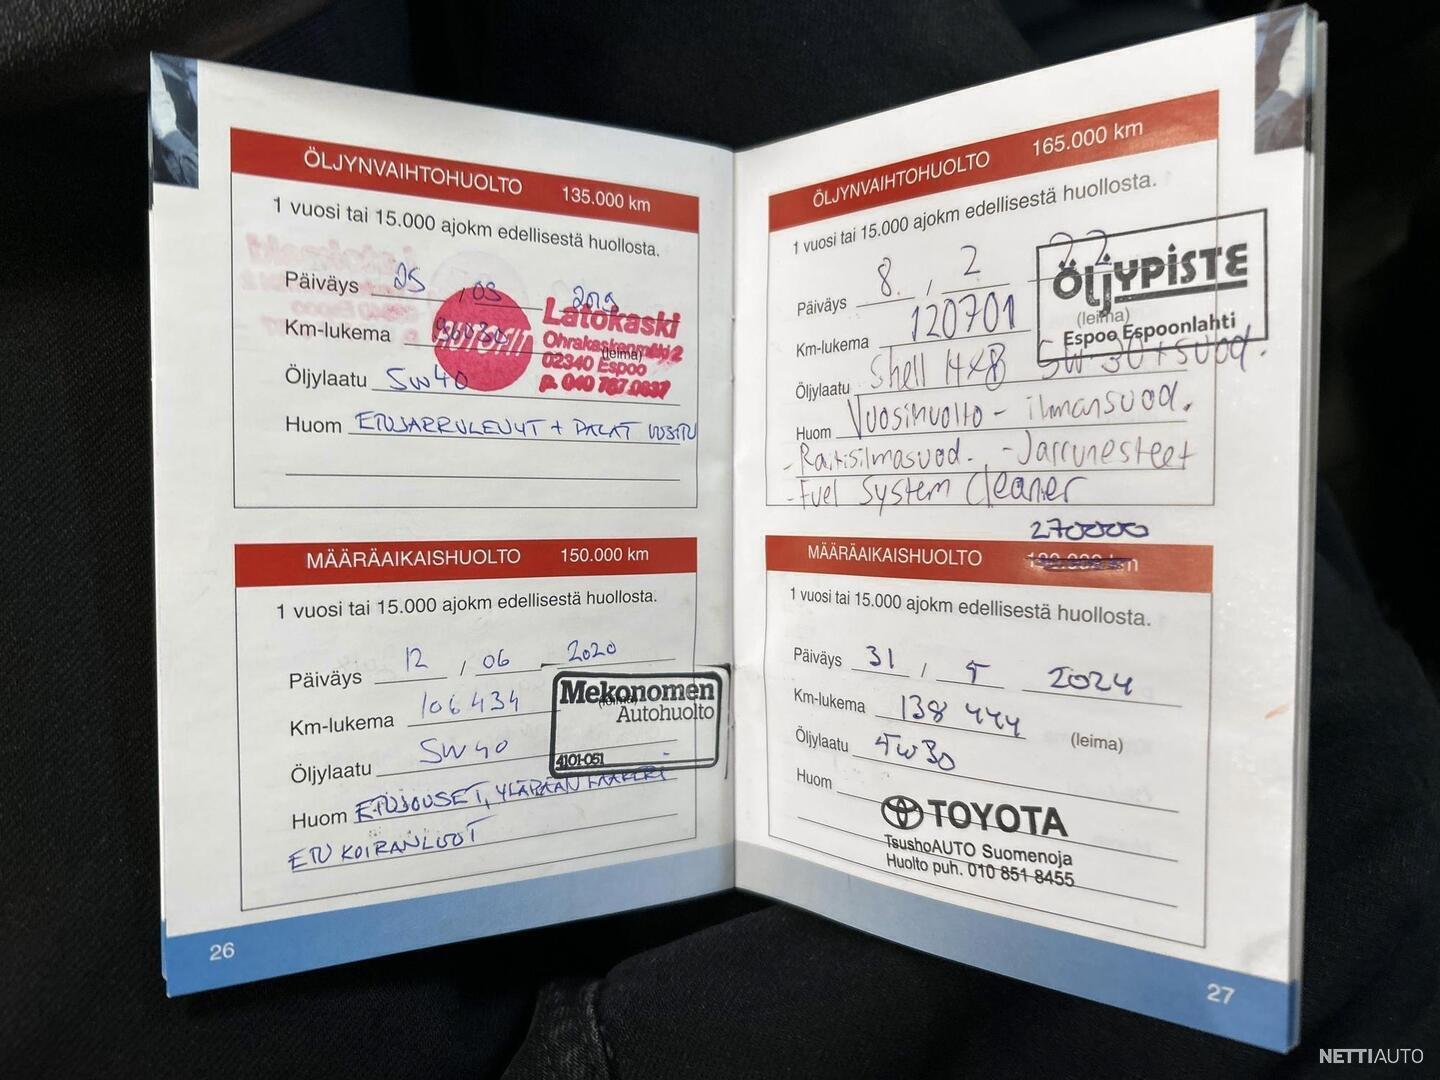 ÖLJYNVAIHTOHUOLTO 135.000 km
1 vuosi tai 15.000 ajokm edellisestä huollosta.
Päiväys 25 , 03 2019
Km-lukema
(leima)
AUTOFIT
Latokaski
Ohrakaskenmäki 2
02340 Espoo
p. 040 767 0637
Öljylaatu 5W40
Huom ETUJARRULEVYT + PALAT UUSITU
MÄÄRÄAIKAISHUOLTO 150.000 km
1 vuosi tai 15.000 ajokm edellisestä huollosta.
Päiväys 12 , 06 2020
Km-lukema 106434
(leima)
Mekonomen
Autohuolto
4101-051
Öljylaatu 5W40
Huom ETUJOUSET, YLÄPÄÄN LAAKERI
ETU KOIRANLUUT
26
ÖLJYNVAIHTOHUOLTO 165.000 km
1 vuosi tai 15.000 ajokm edellisestä huollosta.
Päiväys 8. , 2 22
Km-lukema 120701
(leima)
ÖLJYPISTE
Espoo Espoonlahti
Öljylaatu Shell HX8 5W30+suod.
Huom Vuosihuolto - ilmansuod.
- Raitisilmasuod. - Jarrunesteet
- Fuel System Cleaner
270000
MÄÄRÄAIKAISHUOLTO 180.000 km
1 vuosi tai 15.000 ajokm edellisestä huollosta.
Päiväys 31 / 5 2024
Km-lukema 138 444
(leima)
Öljylaatu 5W30
Huom
TOYOTA
TsushoAUTO Suomenoja
Huolto puh. 010 851 8455
27
NETTIAUTO